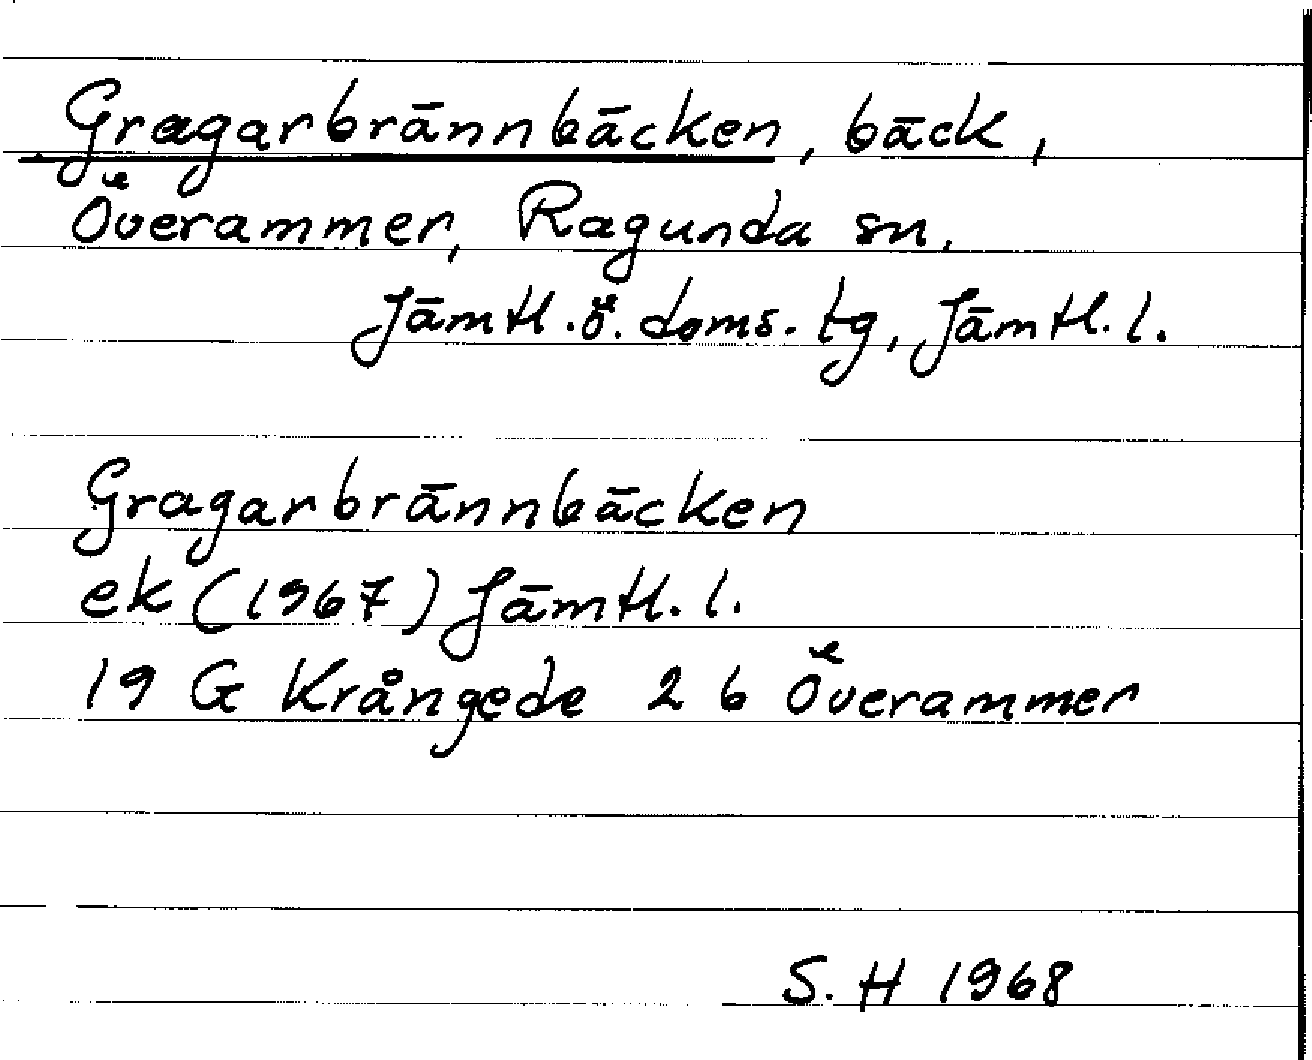 Gragarbrännbäcken, bäck,
Överammer, Ragunda sn.
Jämtl. ö. doms. tg, Jämtl. l.
Gragarbrännbäcken
ek (1967) Jämtl. l.
19 G Krångede 2 b Överammer
S. H 1968